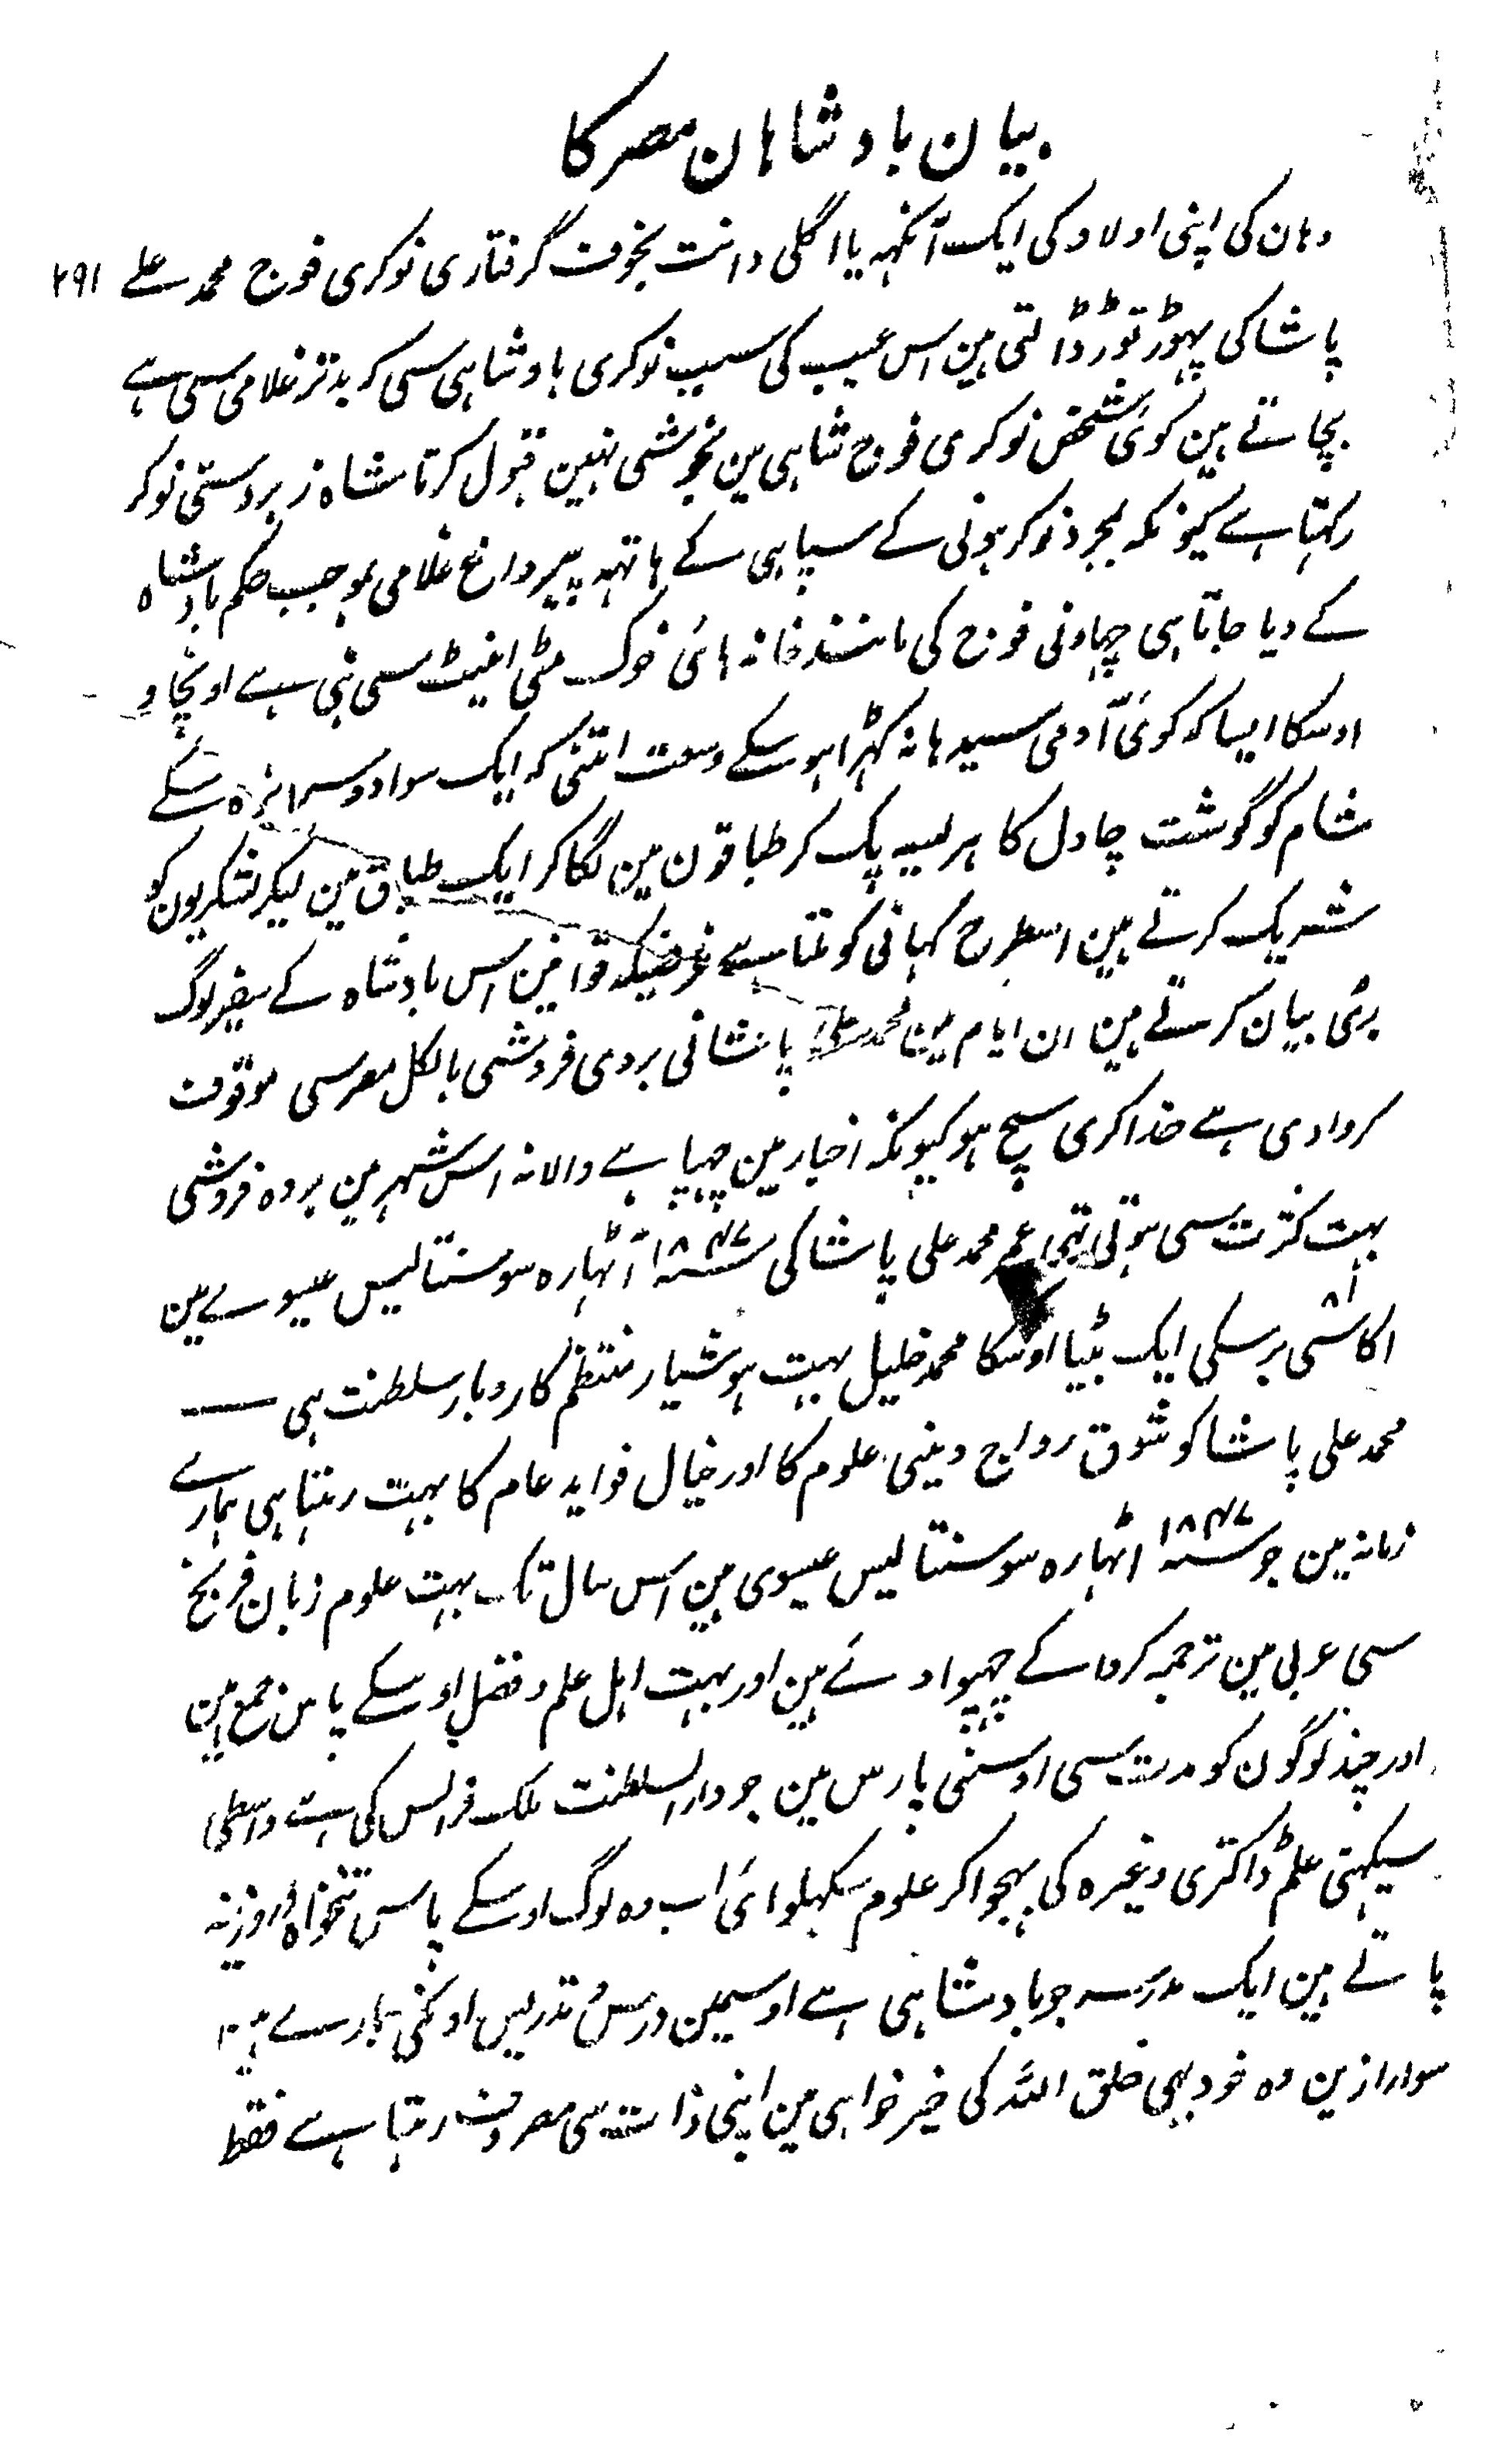 بیان بادشاہان مصر کا
وہان کی اپنی اولاد کی ایک آنکہہ یا اگلی دانت بخوف گرفتاری نوکری فوج محمد علے ۲۹۱
پاشا کی پہوڑ توڑ ڈالتی ہین اس عیب کی سبب نوکری بادشاہی سی کہ بدتر غلامی سی ہے
بچاتے ہین کوئی شخص نوکری فوج شاہی مین بخوشی نہین قبول کرتا شاہ زبردستی نوکر
رکہتا ہے کیونکہ بمجرد نوکر ہونی کے سپاہی کے ہاتہہ پیر داغ غلامی بموجب حکم بادشاہ
کے دیا جاتا ہی چہاونی فوج کی مانند خانہ ہائی خوک مٹی اینٹ سی بنی ہے اونچاو
اوسکا ایسا کہ کوئی آدمی سیدہا نہ کہڑا ہو سکے وسعت اتنی کہ ایک سوا دوسرا نرہ سکے
شام کو گوشت چاول کا ہریسہ پک کر طباقون مین لگا کر ایک طباق مین لیکر لشکریون کو
شریک کرتے ہین اسطرح کہانی کو ملتا ہے غرضیکہ قوانین اس بادشاہ کے بعضے لوگ
بری بیان کرتے ہین ان ایام مین محمد علی پاشا نی بردی فروشی بالکل مصر سی موقوف
کروادی ہے خدا کری سچ ہو کیونکہ اخبار مین چہپا ہے والا نہ اس شہر مین بردہ فروشی
بہت کثرت سی ہوتی تہی عمر محمد علی پاشا کی سنہ ۱۸۴۷ اٹہارہ سو سنتالیس عیسوے مین
اکاسی ۸۱ برسکی ایک بٹیا اوسکا محمد خلیل بہت ہوشیار منتظم کاروبار سلطنت ہی
محمد علی پاشا کو شوق رواج دینی علوم کا اور خیال فواید عام کا بہت رہتا ہی ہمارے
زمانہ مین جو سنہ ۱۸۴۷ اٹہارہ سو سنتالیس عیسوی ہین اس سال تک بہت علوم زبان فرنچ
سی عربی مین ترجمہ کروا کے چہپوا دئے ہین اور بہت اہل علم و فضل اوسکے پاس جمع ہین
اور چند لوگون کو مدت سی اوسنی پارس مین جو دار السلطنت ملک فرانس کی ہے واسطی
سیکہنی علم ڈاکتری وغیرہ کی بہجوا کر علوم سکہلوائی اب وہ لوگ اوسکے پاس تنخواہ و روزینہ
پاتے ہین ایک مدرسہ جو بادشاہی ہے اوسمین درس تدریس اونکی سے ہین
سوا ازین وہ خود بہی خلق اللہ کی خیر خواہی مین اپنی ذات سی مصروف رہتا ہے فقط